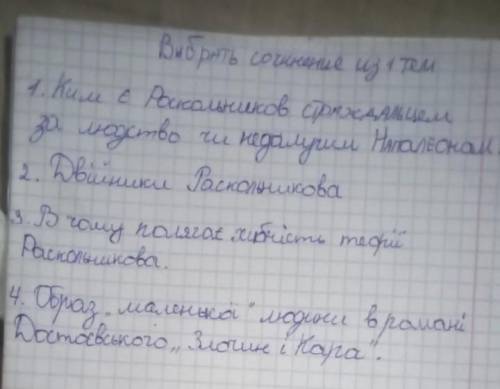 Выбрать сочинение из 1 тем
1. Ким є Раскольников страждальцем
за людство чи недолугим Наполеоном.
2. Двійники Раскольникова
3. В чому полягає хибність теорії
Раскольникова.
4. Образ „маленької" людини в романі
Достоєвського „Злочин і Кара".